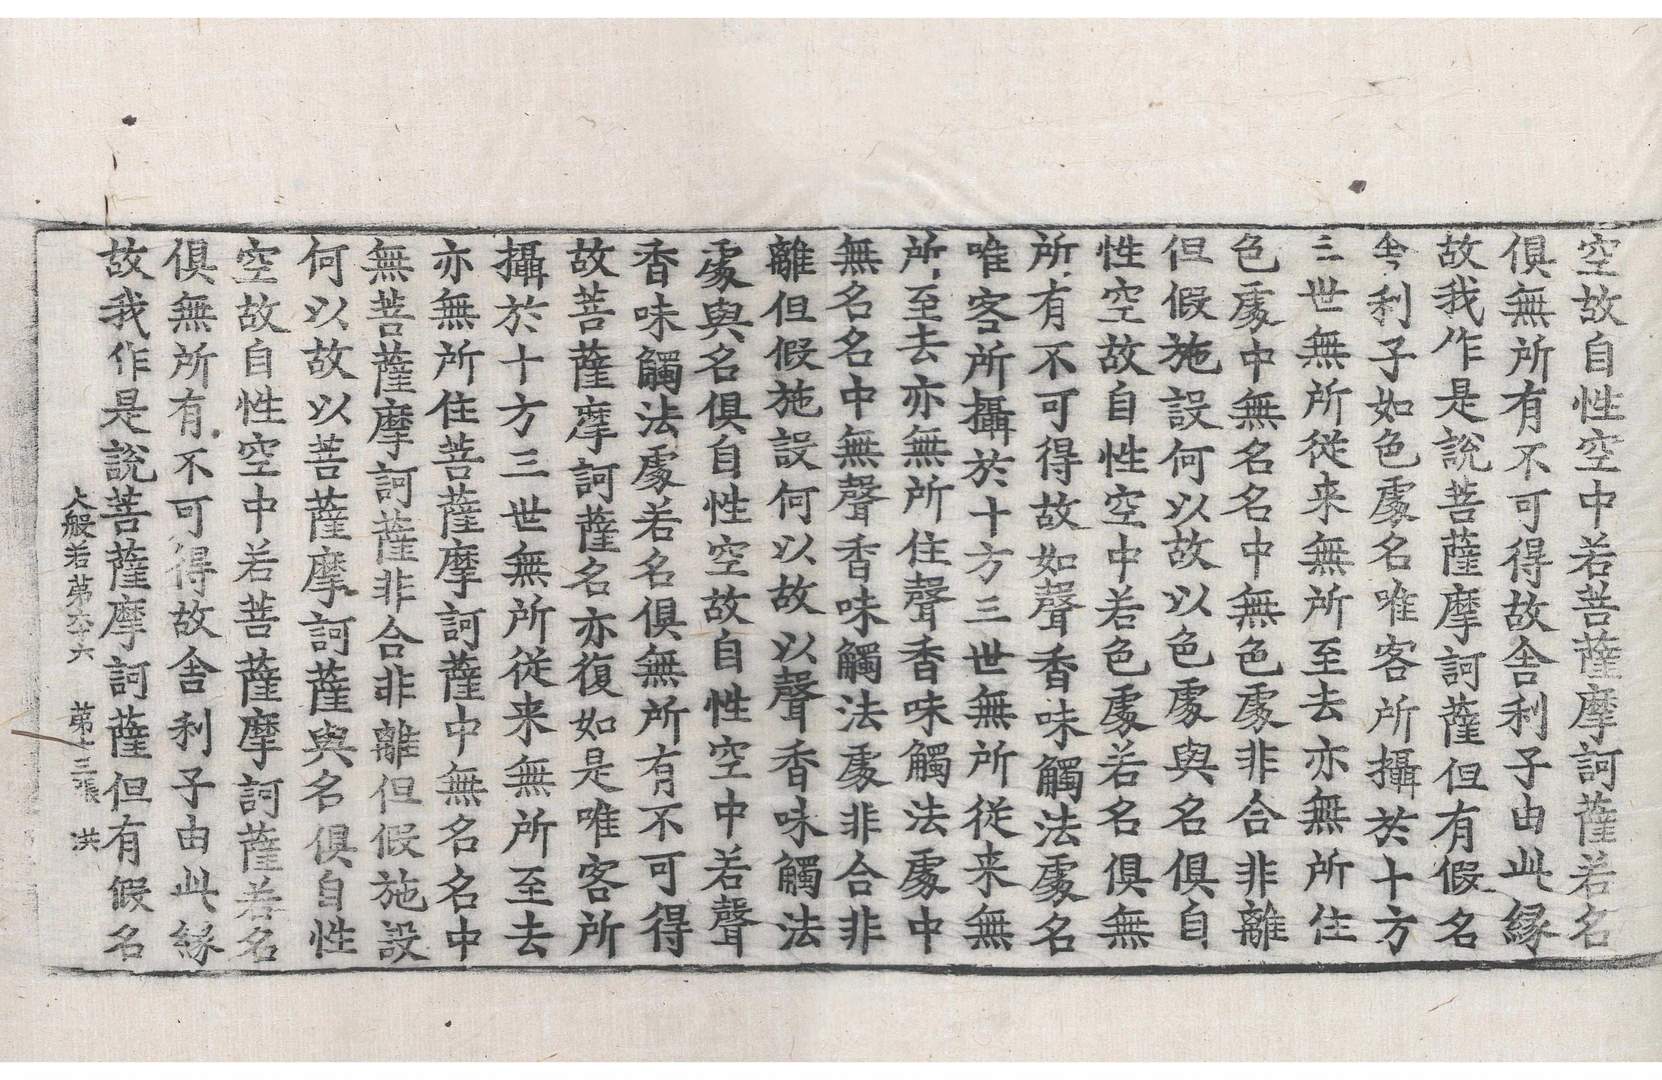 空故自性空中若菩薩摩訶薩若名
俱無所有不可得故舎利子由此緣
故我作是說菩薩摩訶薩但有假名
舎利子如色處名唯客所攝於十方
三世無所從来無所至去亦無所住
色處中無名名中無色處非合非離
但假施設何以故以色處與名俱自
性空故自性空中若色處若名俱無
所有不可得故如聲香味觸法處名
唯客所攝於十方三世無所從来無
所至去亦無所住聲香味觸法處中
無名名中無聲香味觸法處非合非
離但假施設何以故以聲香味觸法
處與名俱自性空故自性空中若聲
香味觸法處若名俱無所有不可得
故菩薩摩訶薩名亦復如是唯客所
攝於十方三世無所從来無所至去
亦無所住菩薩摩訶薩中無名名中
無菩薩摩訶薩非合非離但假施設
何以故以菩薩摩訶薩與名俱自性
空故自性空中若菩薩摩訶薩若名
俱無所有不可得故舎利子由此緣
故我作是說菩薩摩訶薩但有假名
大般若第六十六 第十三張 洪